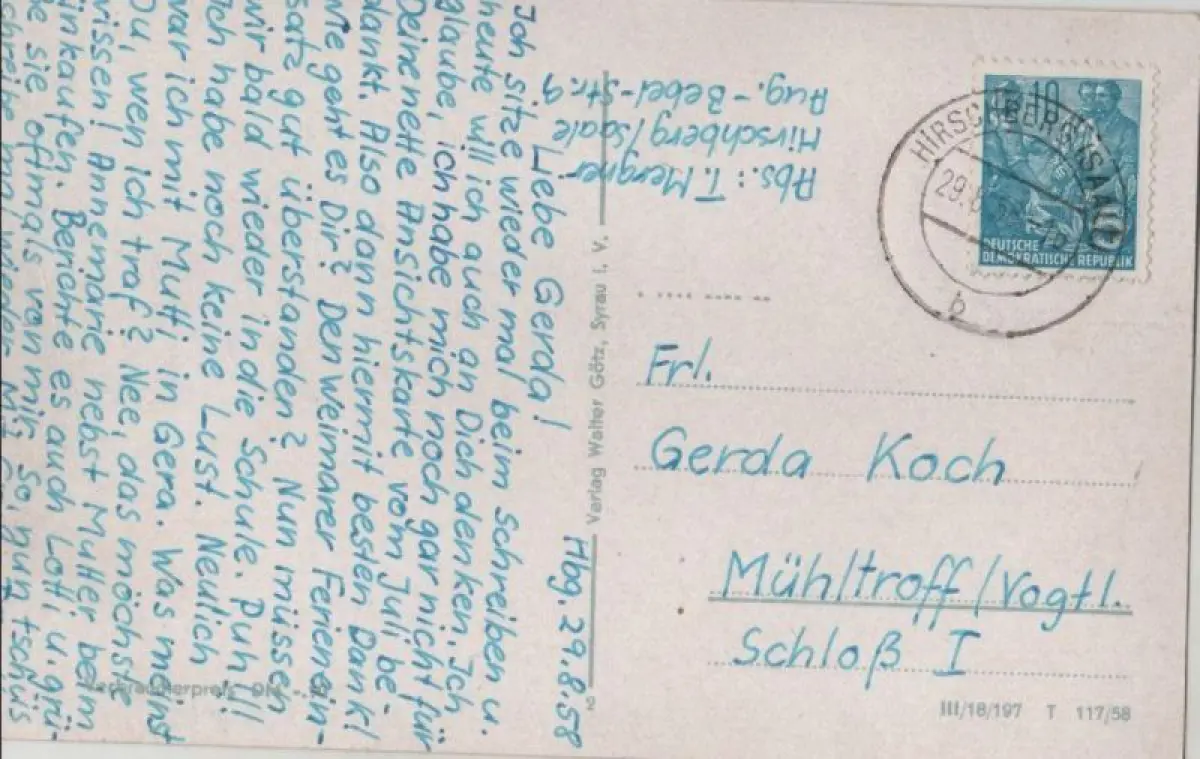 Hbg. 29.8.58
Liebe Gerda!
Ich sitze wieder mal beim Schreiben u.
heute will ich auch an Dich denken. Ich
glaube, ich habe mich noch gar nicht für
Deine nette Ansichtskarte vom Juli be-
dankt. Also dann hiermit besten Dank!
Wie geht es Dir? Den Weimarer Ferienein-
satz gut überstanden? Nun müssen
wir bald wieder in die Schule. Puh!!
Ich habe noch keine Lust. Neulich
war ich mit Mutti in Gera. Was meinst
Du, wen ich traf? Nee, das möchtste
wissen! Annemarie nebst Mutter beim
Einkaufen. Berichte es auch Lotti u. grü-
ße sie oftmals von mir. So, nun tschüs
schreibe mal wieder
Abs.: T. Mergner
Hirschberg/Saale
Aug.-Bebel-Str. 9
Verlag Walter Götz, Syrau i. V.
10
DEUTSCHE
DEMOKRATISCHE REPUBLIK
HIRSCHBERG (SAALE)
b
Frl.
Gerda Koch
Mühltroff/Vogtl.
Schloß I
III/18/197 T 117/58